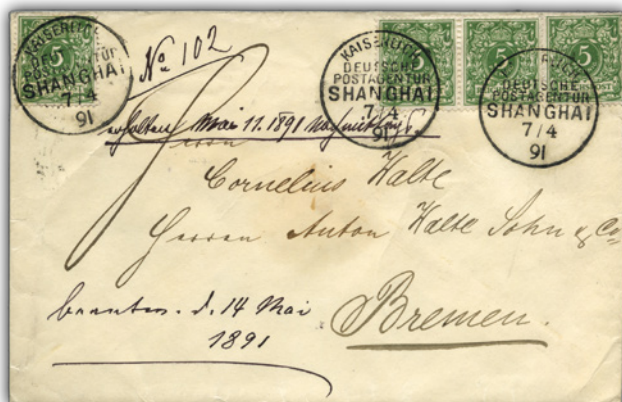 5
KAISERLICH
DEUTSCHE
POSTAGENTUR
SHANGHAI
7/4
91
No 102
KAISERLICH
DEUTSCHE
POSTAGENTUR
SHANGHAI
7/4
91
5
5
5
DEUTSCHE
POSTAGENTUR
SHANGHAI
7/4
91
erhalten Mai 11. 1891 nachmittags.
Herrn
Cornelius Walte
Herren Anton Walte Sohn & Co
beantw. d. 14 Mai
1891
Bremen.